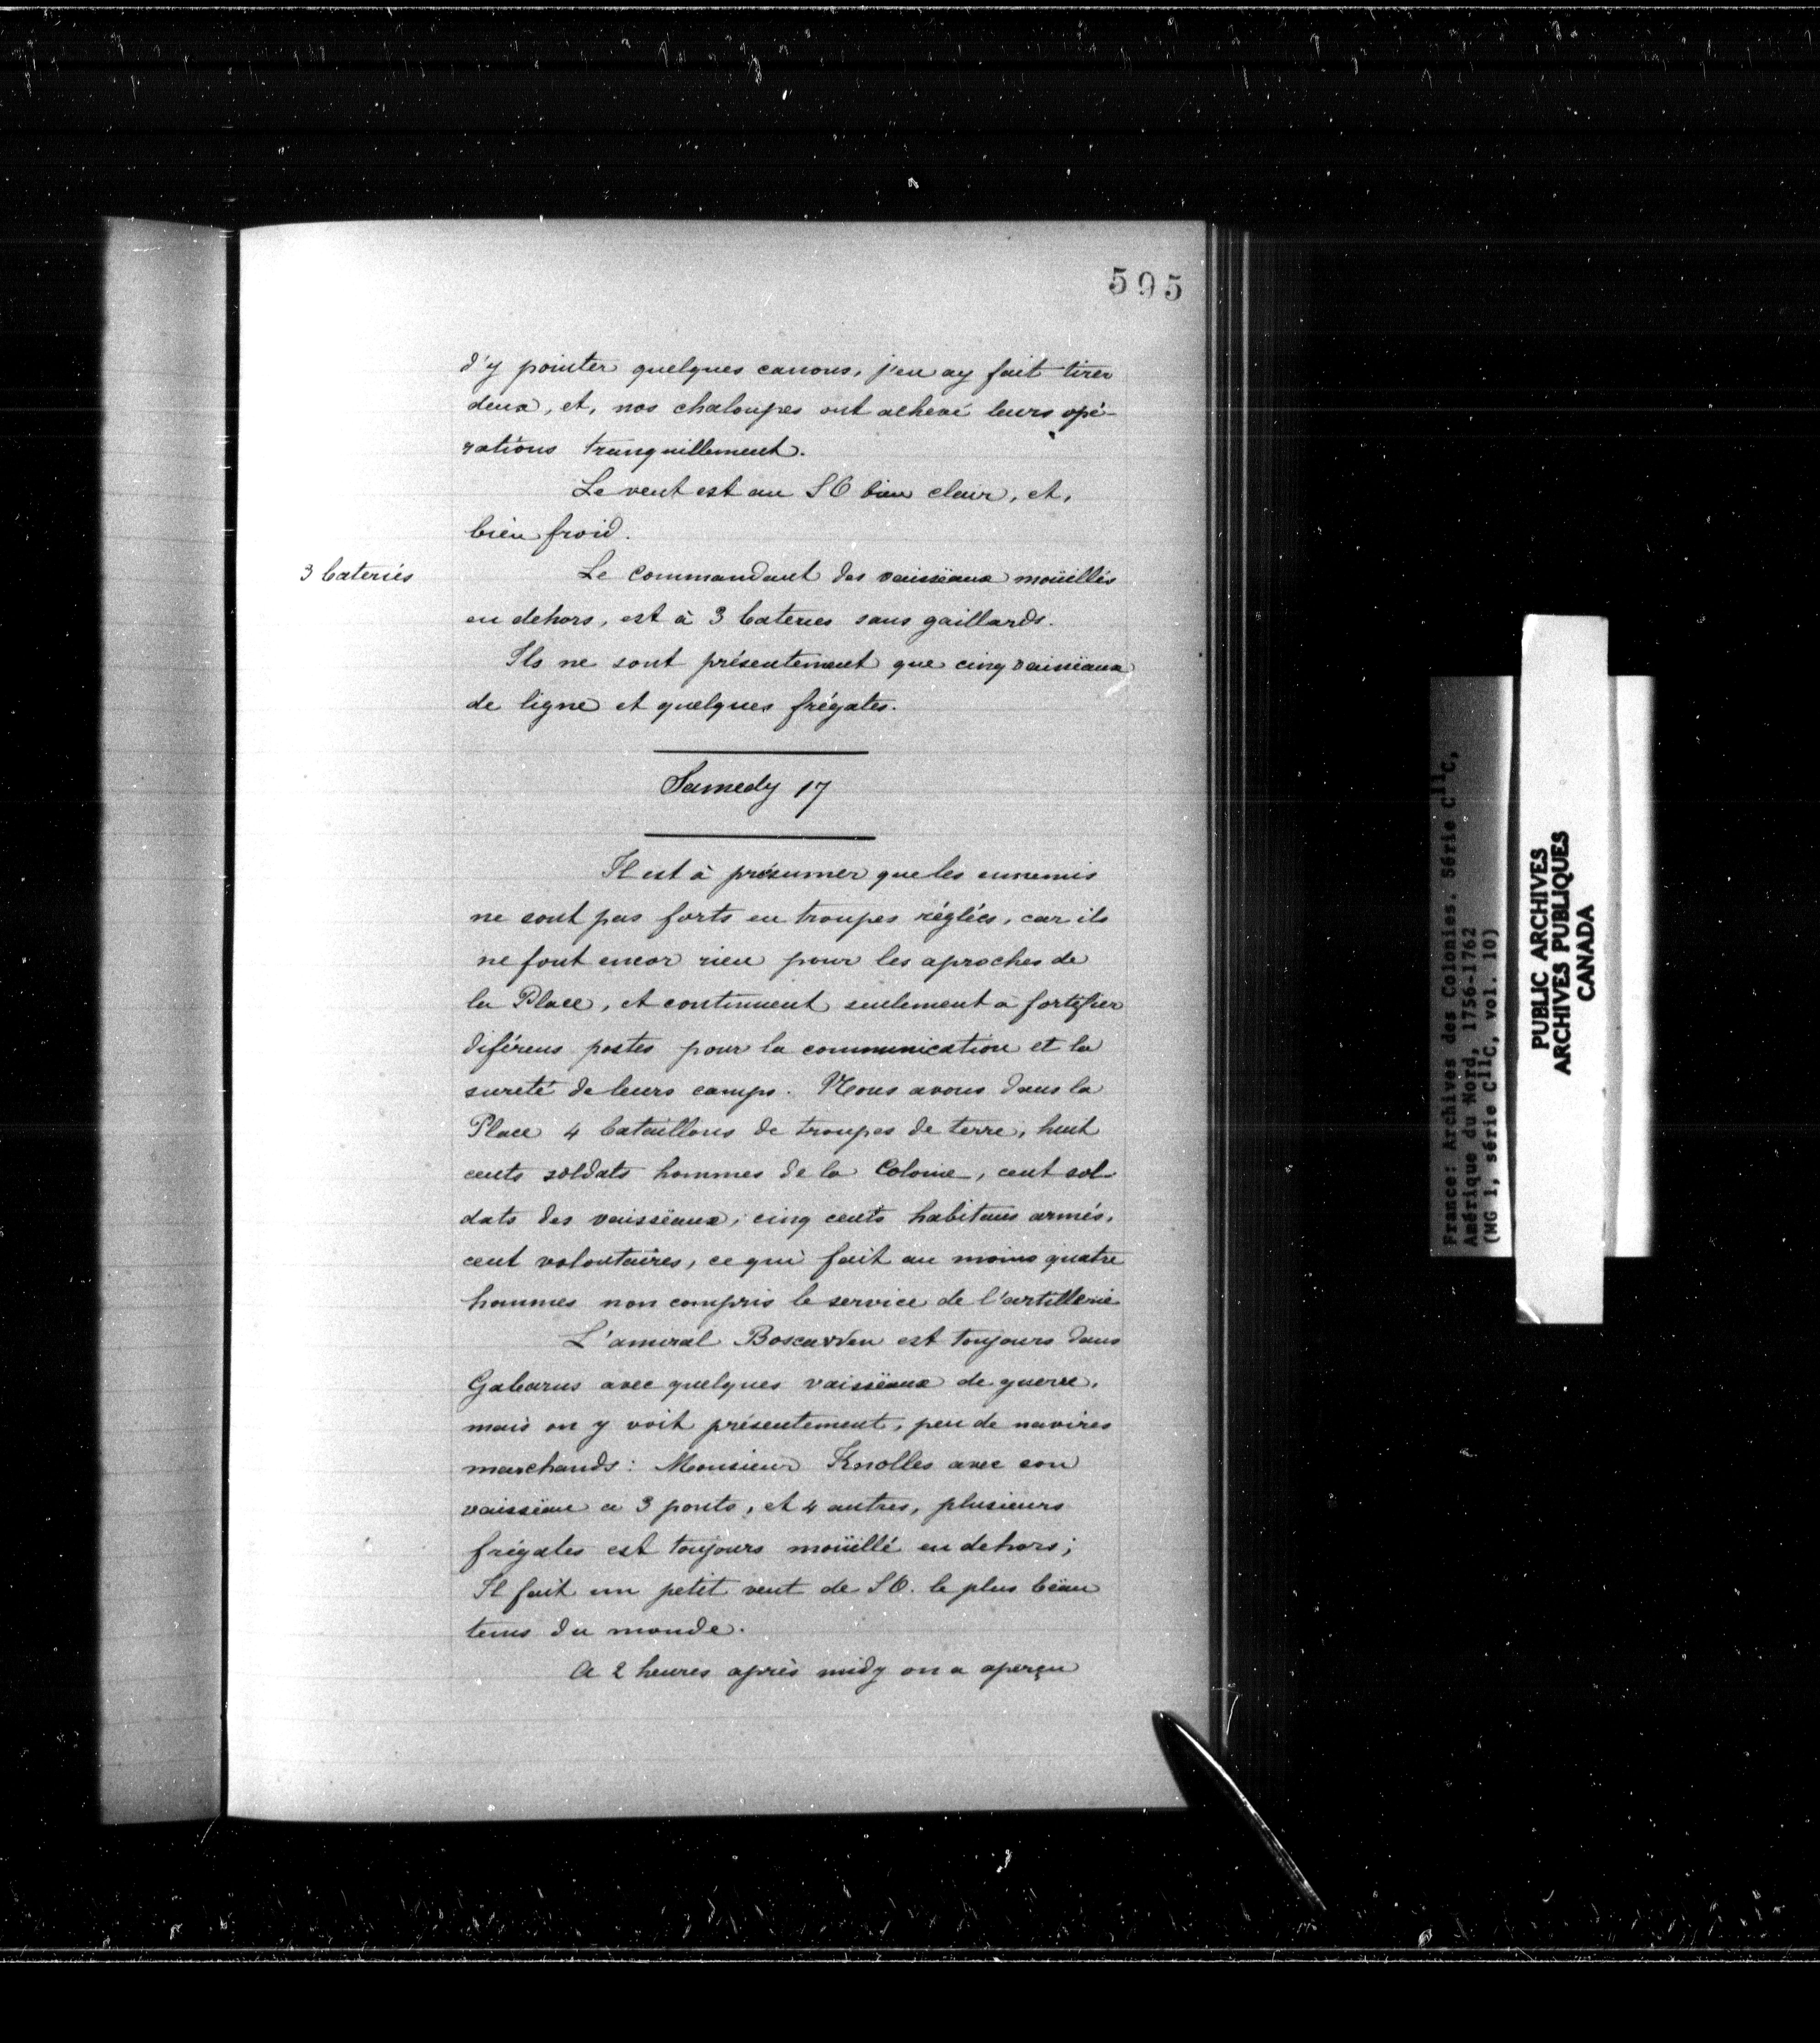 595
d'y pointer quelques canons, j'en ay fait tirer
deux, et, nos chaloupes ont achevé leurs opé-
rations tranquillement.
Le vent est au SO bien clair, et,
bien froid.
3 bateries
Le Commandant des vaissëaux moüillés
en dehors, est à 3 bateries sans gaillards.
Ils ne sont présentement que cinq vaissëaux
de ligne et quelques frégates.
Samedy 17
Il est à présumer que les ennemis
ne sont pas forts en troupes réglées, car ils
ne font encor rien pour les aproches de
la Place, et continuent seulement a fortifier
diférens postes pour la communication et la
sureté de leurs camps. Nous avons dans la
Place 4 bataillons de troupes de terre, huit
cents soldats hommes de la Colonie, cent sol-
dats des vaissëaux, cinq cents habitans armés,
cent volontaires, ce qui fait au moins quatre
hommes non compris le service de l'artillerie
L'amiral Boscawen est toujours dans
Gabarus avec quelques vaissëaux de guerre,
mais on y voit présentement, peu de navires
marchands: Monsieur Knolles avec son
vaissëau a 3 ponts, et 4 autres, plusieurs
frégates est toujours moüillé en dehors;
Il fait un petit vent de SO. le plus bëau
tems du monde.
A 2 heures après midy on a aperçu
France: Archives des Colonies. Série C11C,
Amérique du Nord, 1756-1762
(MG 1, série C11C, vol. 10)
PUBLIC ARCHIVES
ARCHIVES PUBLIQUES
CANADA